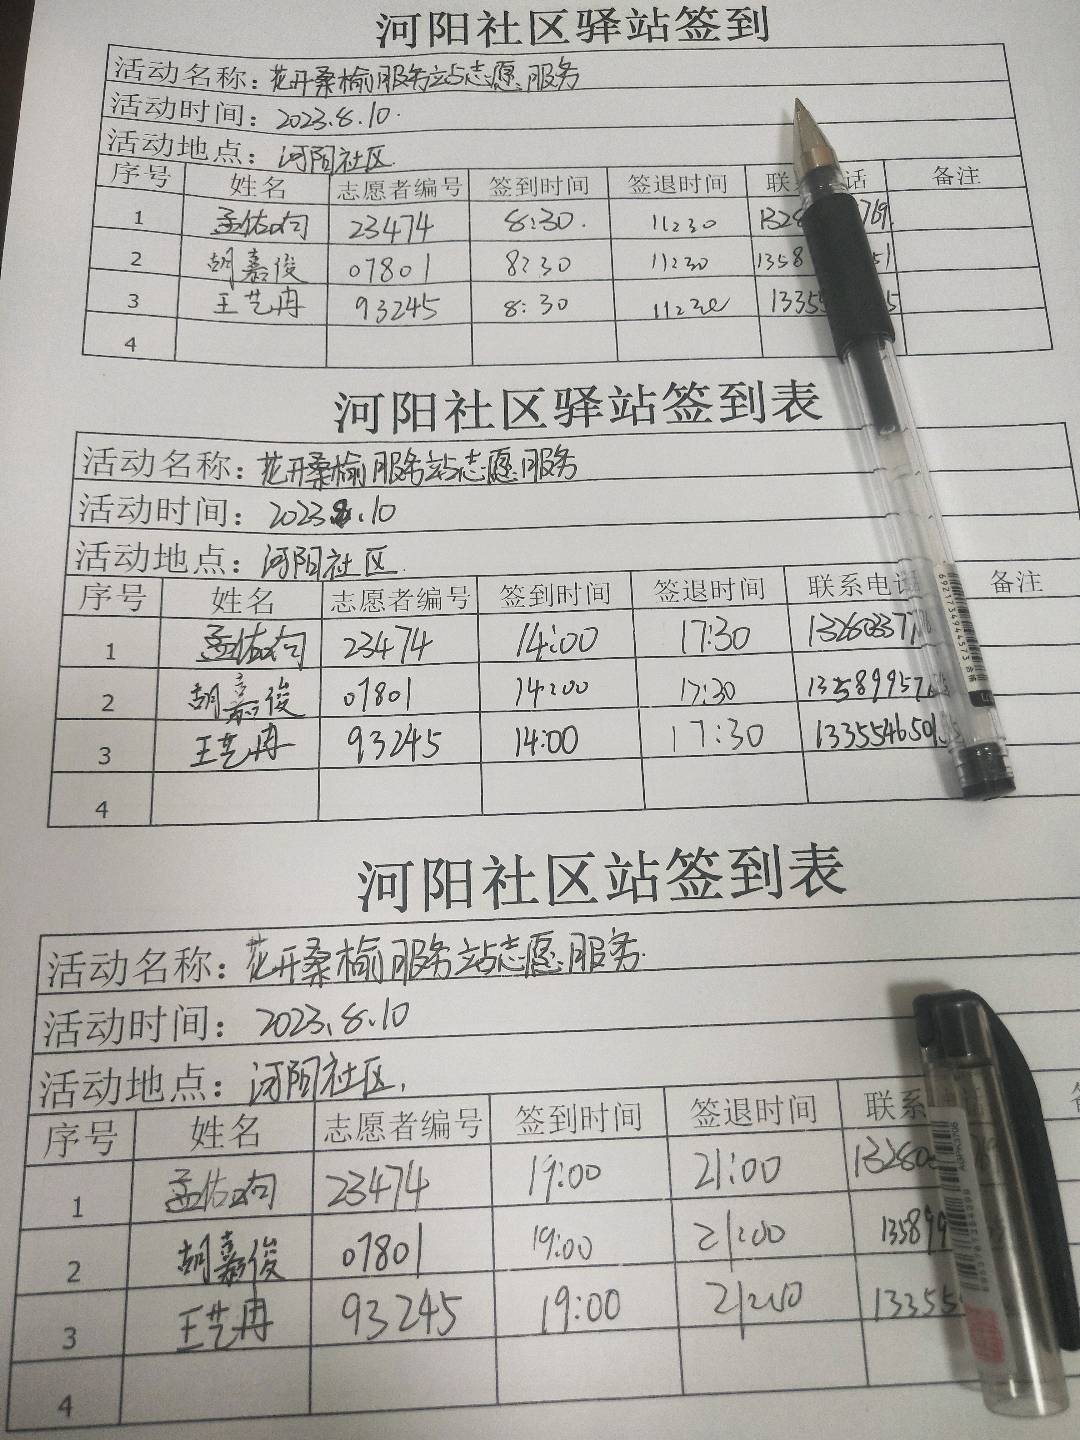 河阳社区驿站签到
活动名称：花开桑榆服务站志愿服务
活动时间：2023.8.10.
活动地点：河阳社区
序号 姓名 志愿者编号 签到时间 签退时间 联系 话 备注
1 孟佑向 23474 8:30. 11:30 1328 769.
2 胡嘉俊 07801 8:30 11:30 1358 51
3 王艺冉 93245 8:30 11:30 1335 5
4
河阳社区驿站签到表
活动名称：花开桑榆服务站志愿服务
活动时间：2023.8.10
活动地点：河阳社区.
序号 姓名 志愿者编号 签到时间 签退时间 联系电话 备注
1 孟佑向 23474 14:00 17:30
2 胡嘉俊 07801 14:00 17:30 13589957
3 王艺冉 93245 14:00 17:30 133554650
4
河阳社区站签到表
活动名称：花开桑榆服务站志愿服务.
活动时间：2023.8.10
活动地点：河阳社区.
序号 姓名 志愿者编号 签到时间 签退时间 联系
1 孟佑向 23474 19:00 21:00 13280
2 胡嘉俊 07801 19:00 21:00 135899
3 王艺冉 93245 19:00 21:00 13355
4
6921734944573